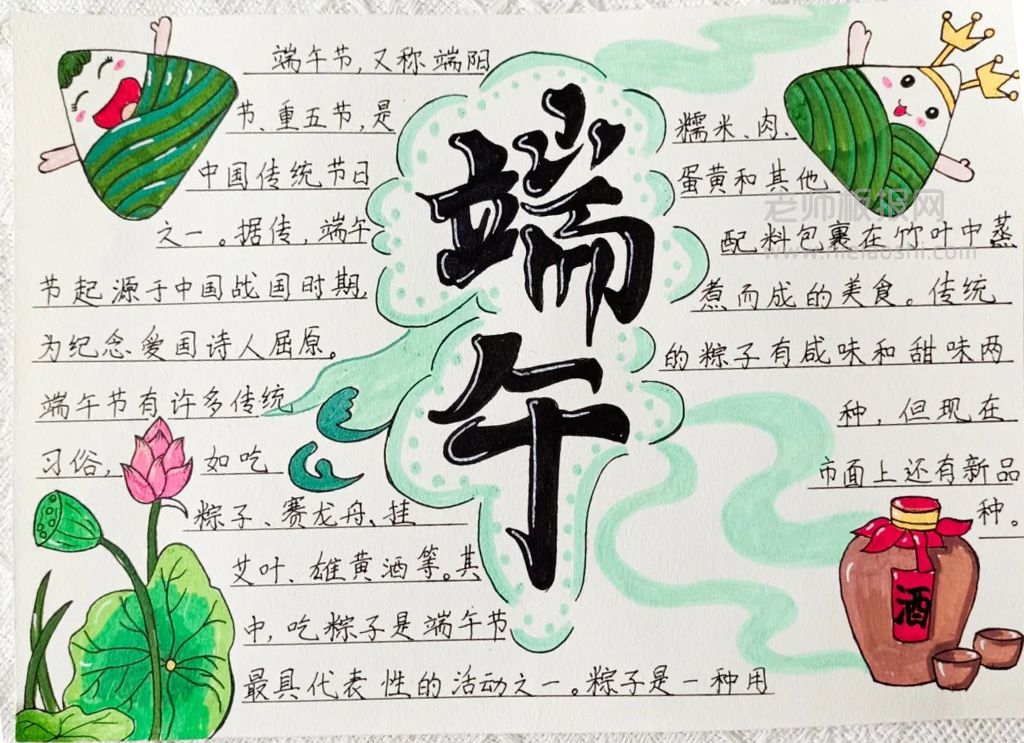 端午节，又称端阳
节、重五节，是
中国传统节日
之一。据传，端午
节起源于中国战国时期，
为纪念爱国诗人屈原。
端午节有许多传统
习俗，如吃
粽子、赛龙舟、挂
艾叶、雄黄酒等。其
中，吃粽子是端午节
最具代表性的活动之一。粽子是一种用
端午
糯米、肉、
蛋黄和其他
配料包裹在竹叶中蒸
煮而成的美食。传统
的粽子有咸味和甜味两
种，但现在
市面上还有新品
种。
酒
老师板报网